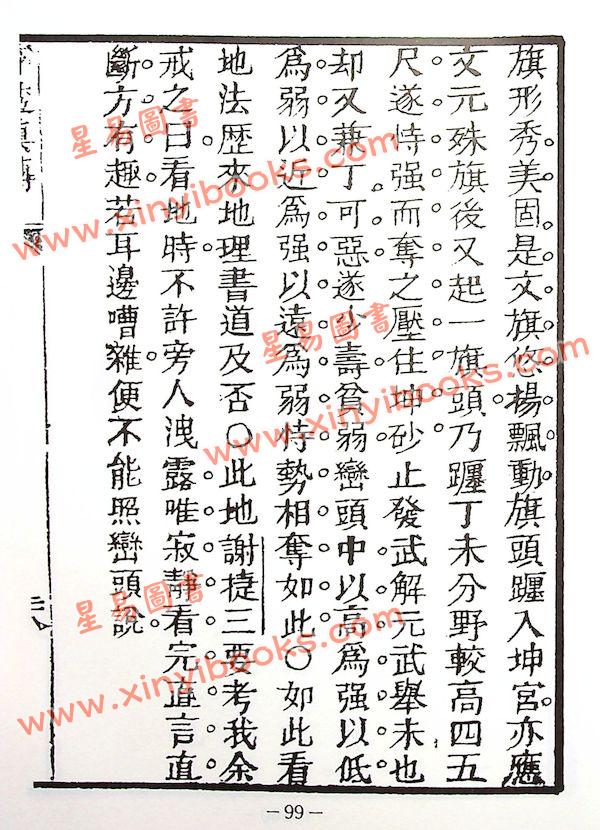 旗形秀美固是文旗悠揚飄動旗頭躔入坤宮亦應
文元殊旗後又起一旗頭乃躔丁未分野較高四五
尺遂恃强而奪之壓住坤砂止發武解元武舉未也
却又兼丁可惡遂少壽貧弱巒頭中以高爲强以低
爲弱以近爲强以遠爲弱恃勢相奪如此〇如此看
地法歴來地理書道及否〇此地謝捷三要考我余
戒之曰看地時不許旁人洩露唯寂靜看完直言直
斷方有趣若耳邊嘈雜便不能照巒頭說
二八
星易圖書
www.xinyibooks.com
星易圖書
www.xinyibooks.com
星易圖書
www.xinyibooks.com
-99-